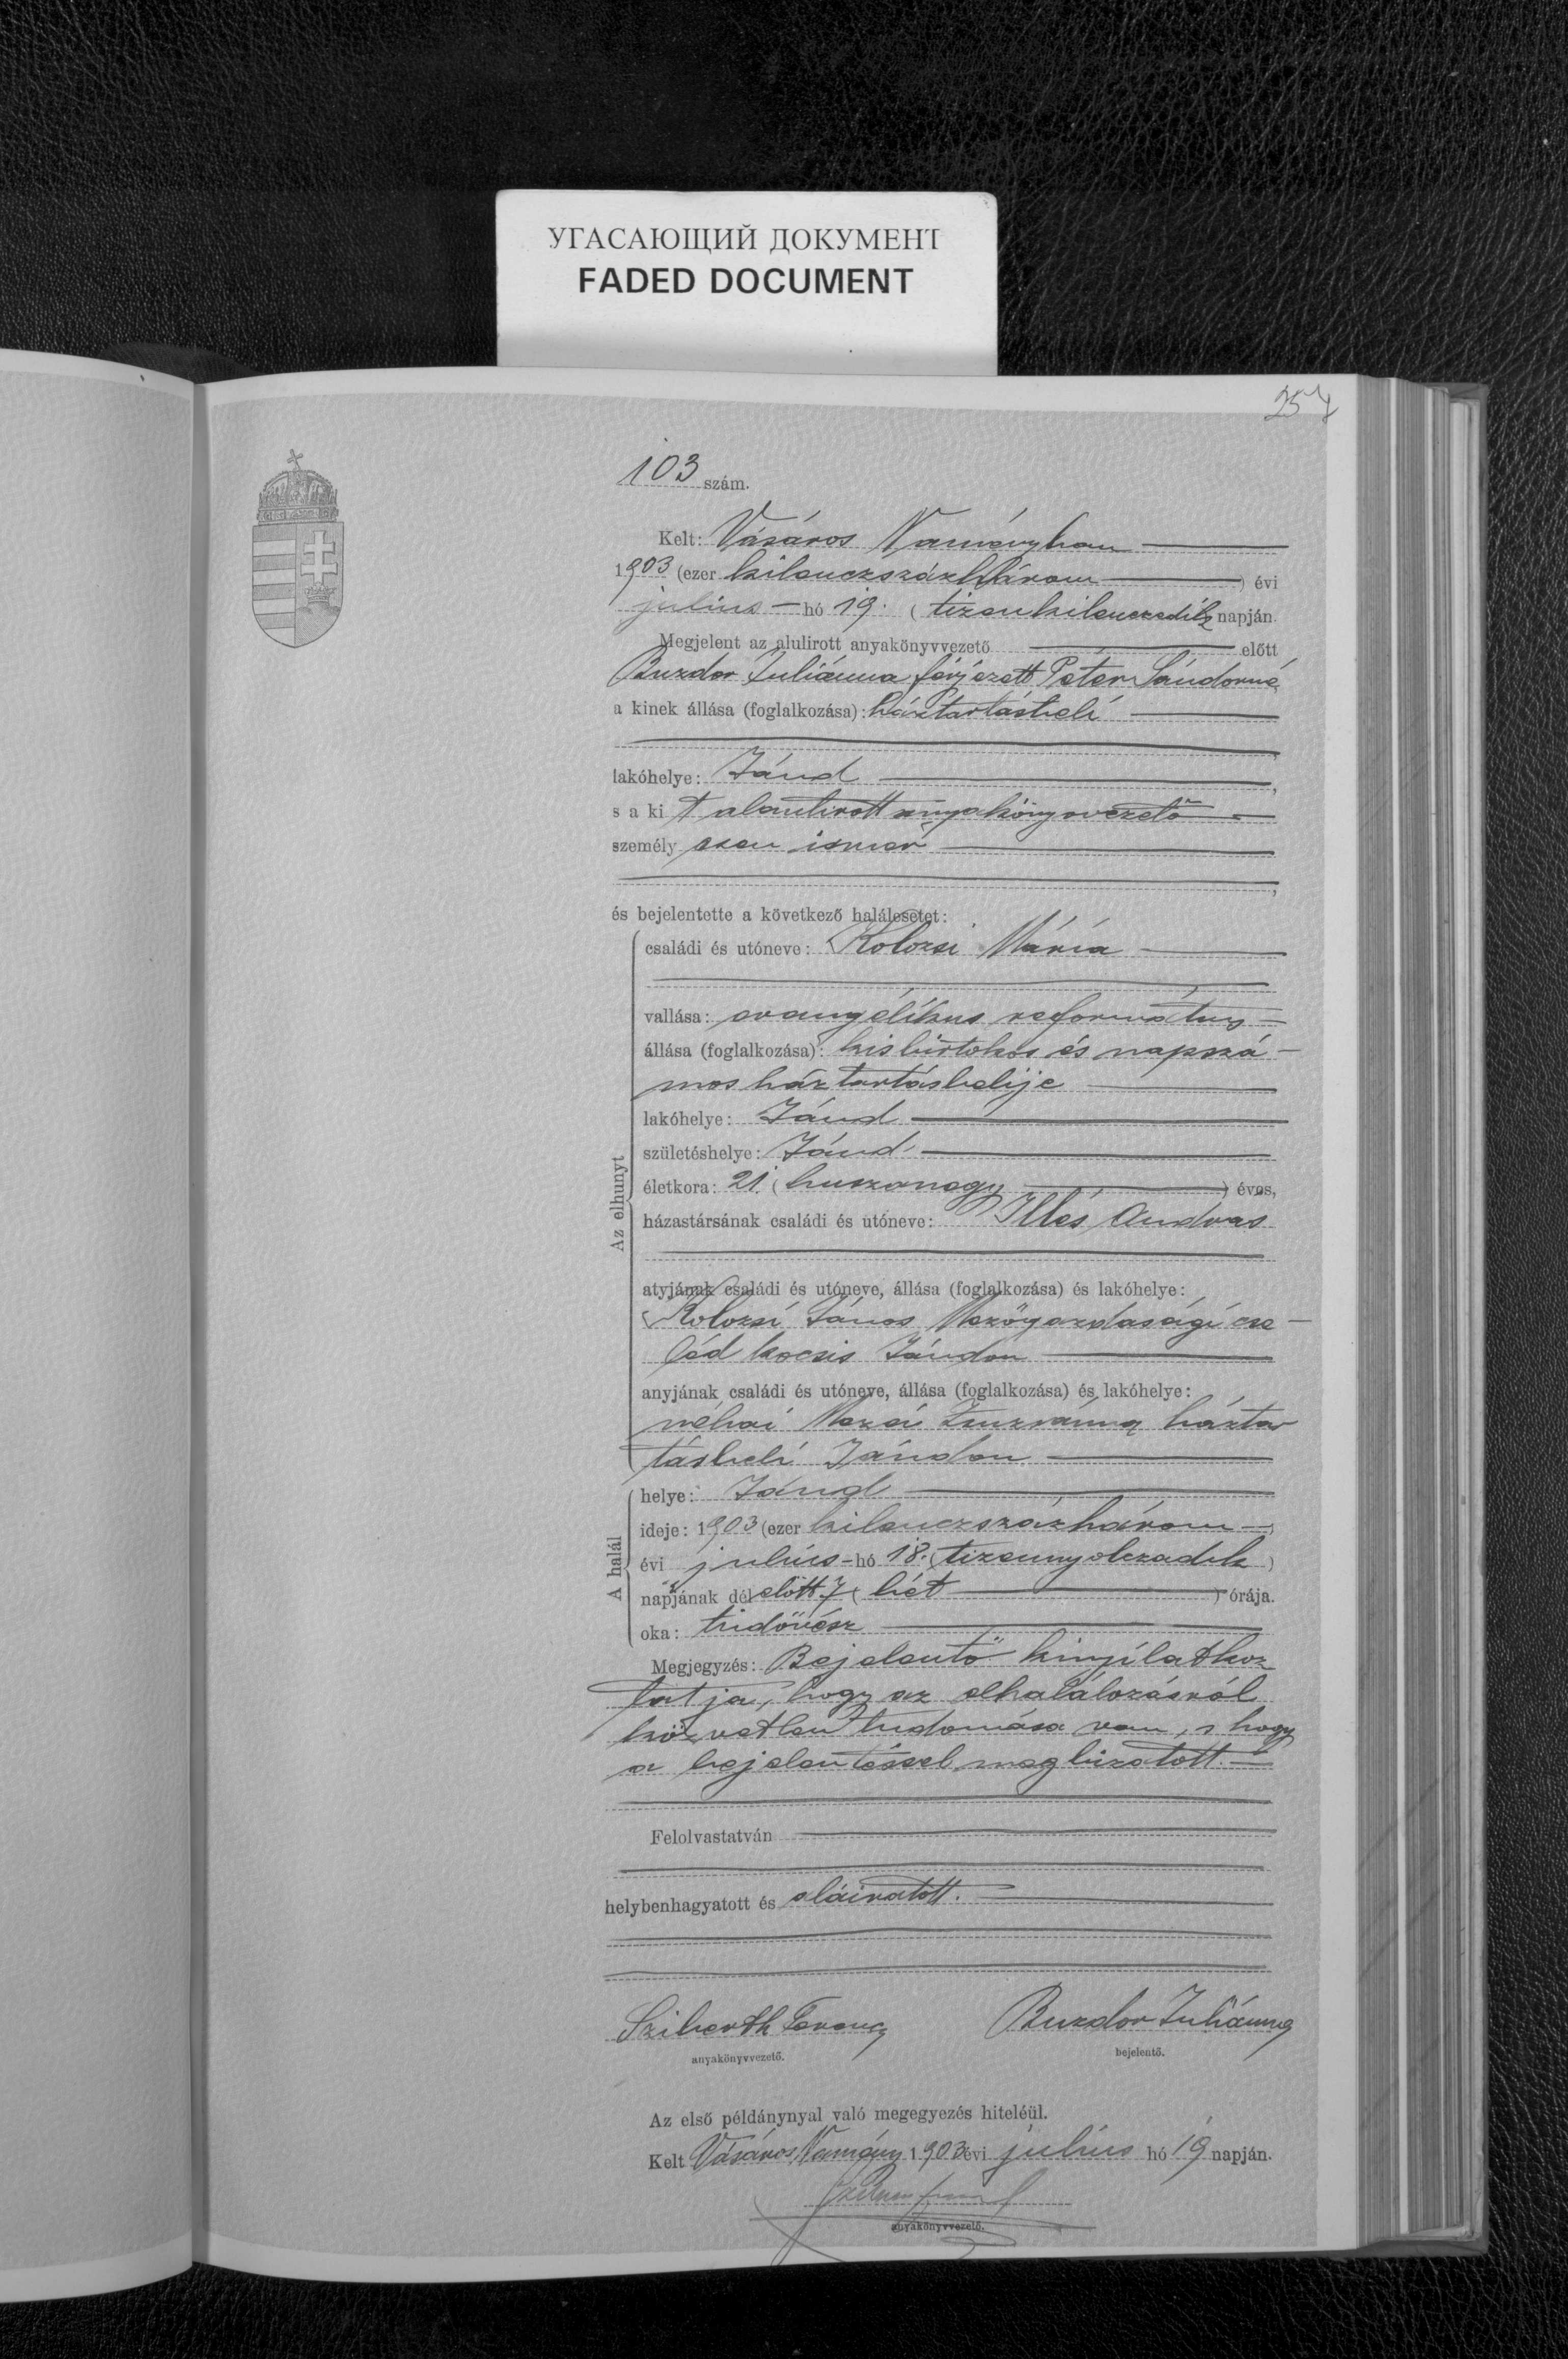 УГАСАЮЩИЙ ДОКУМЕНТ
FADED DOCUMENT
103 szám.
Kelt: Vásáros Naményban
1903 (ezer kilenczszázhárom ) évi
julius hó 19. ( tizenkilenczedik napján.
Megjelent az alulirott anyakönyvvezető előtt
Buzdor Juliánna férjezett Péter Sándorné
a kinek állása (foglalkozása): háztartásbeli
lakóhelye: Jánd ,
s a ki t alantirott anyakönyvvezető
személy esen ismer
,
és bejelentette a következő halálesetet:
Az elhunyt
családi és utóneve: Kolozsi Mária
vallása: evangélikus református
állása (foglalkozása): kisbirtokos és napszá-
mos háztartásbelije
lakóhelye: Jánd
születéshelye: Jánd
életkora: 21. ( huszonegy ) éves,
házastársának családi és utóneve: Illés András
atyjának családi és utóneve, állása (foglalkozása) és lakóhelye:
Kolozsi János Mezőgazdasági cse-
léd kocsis Jándon
anyjának családi és utóneve, állása (foglalkozása) és lakóhelye:
néhai Mezei Zsuzsánna háztar
tásbeli Jándon
A halál
helye: Jánd
ideje: 1903 (ezer kilenczszázhárom )
évi julius - hó 18. ( tizennyolczadik )
napjának dél előtt 7 ( hét ) órája.
oka: tüdővész
Megjegyzés: Bejelentő kinyilatkoz
tatja, hogy az elhalálozásról
közvetlen tudomása van, s hogy
a bejelentéssel megbizatott.
Felolvastatván
helybenhagyatott és aláiratott.
Sziberth Ferencz Buzdor Juliánna
anyakönyvvezető. bejelentő.
Az első példánynyal való megegyezés hiteléül.
Kelt Vásáros Namény 1903 évi julius hó 19 napján.
anyakönyvvezető.